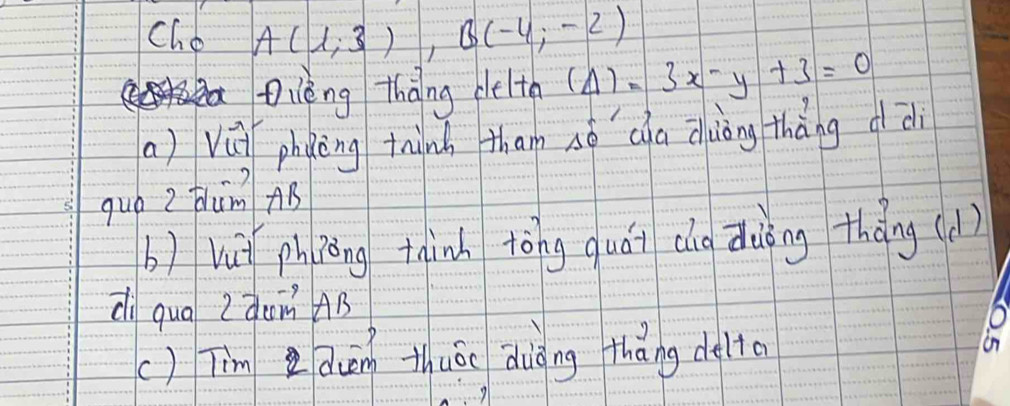 Cho A(1;3), B(-4;-2)
Đường thẳng delta (Δ) = 3x - y + 3 = 0
a) Viết phương trình tham số của đường thẳng d đi
qua 2 điểm AB
b) Viết phương trình tổng quát của đường thẳng (d)
đi qua 2 điểm AB
c) Tìm 2 điểm thuộc đường thẳng delta
0.5